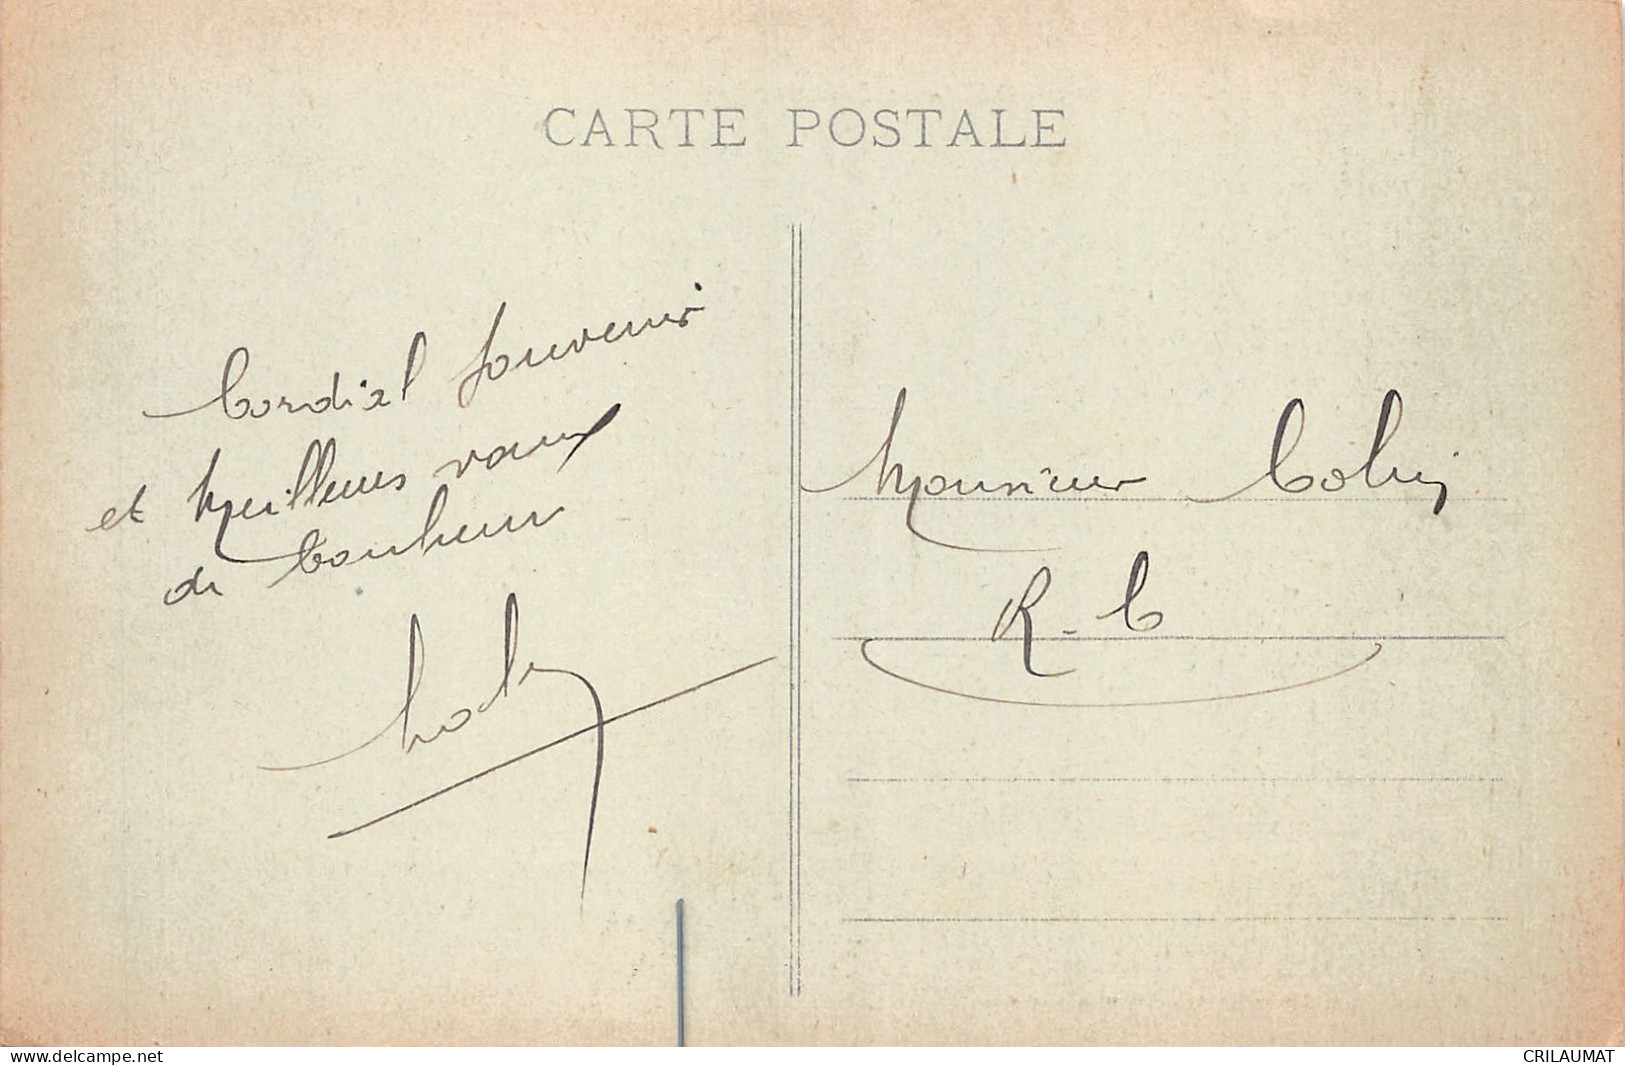 CARTE POSTALE
Cordial souvenir
et meilleurs vœux
de bonheur
Monsieur
R. C
delcampe.net
CRILAUMAT